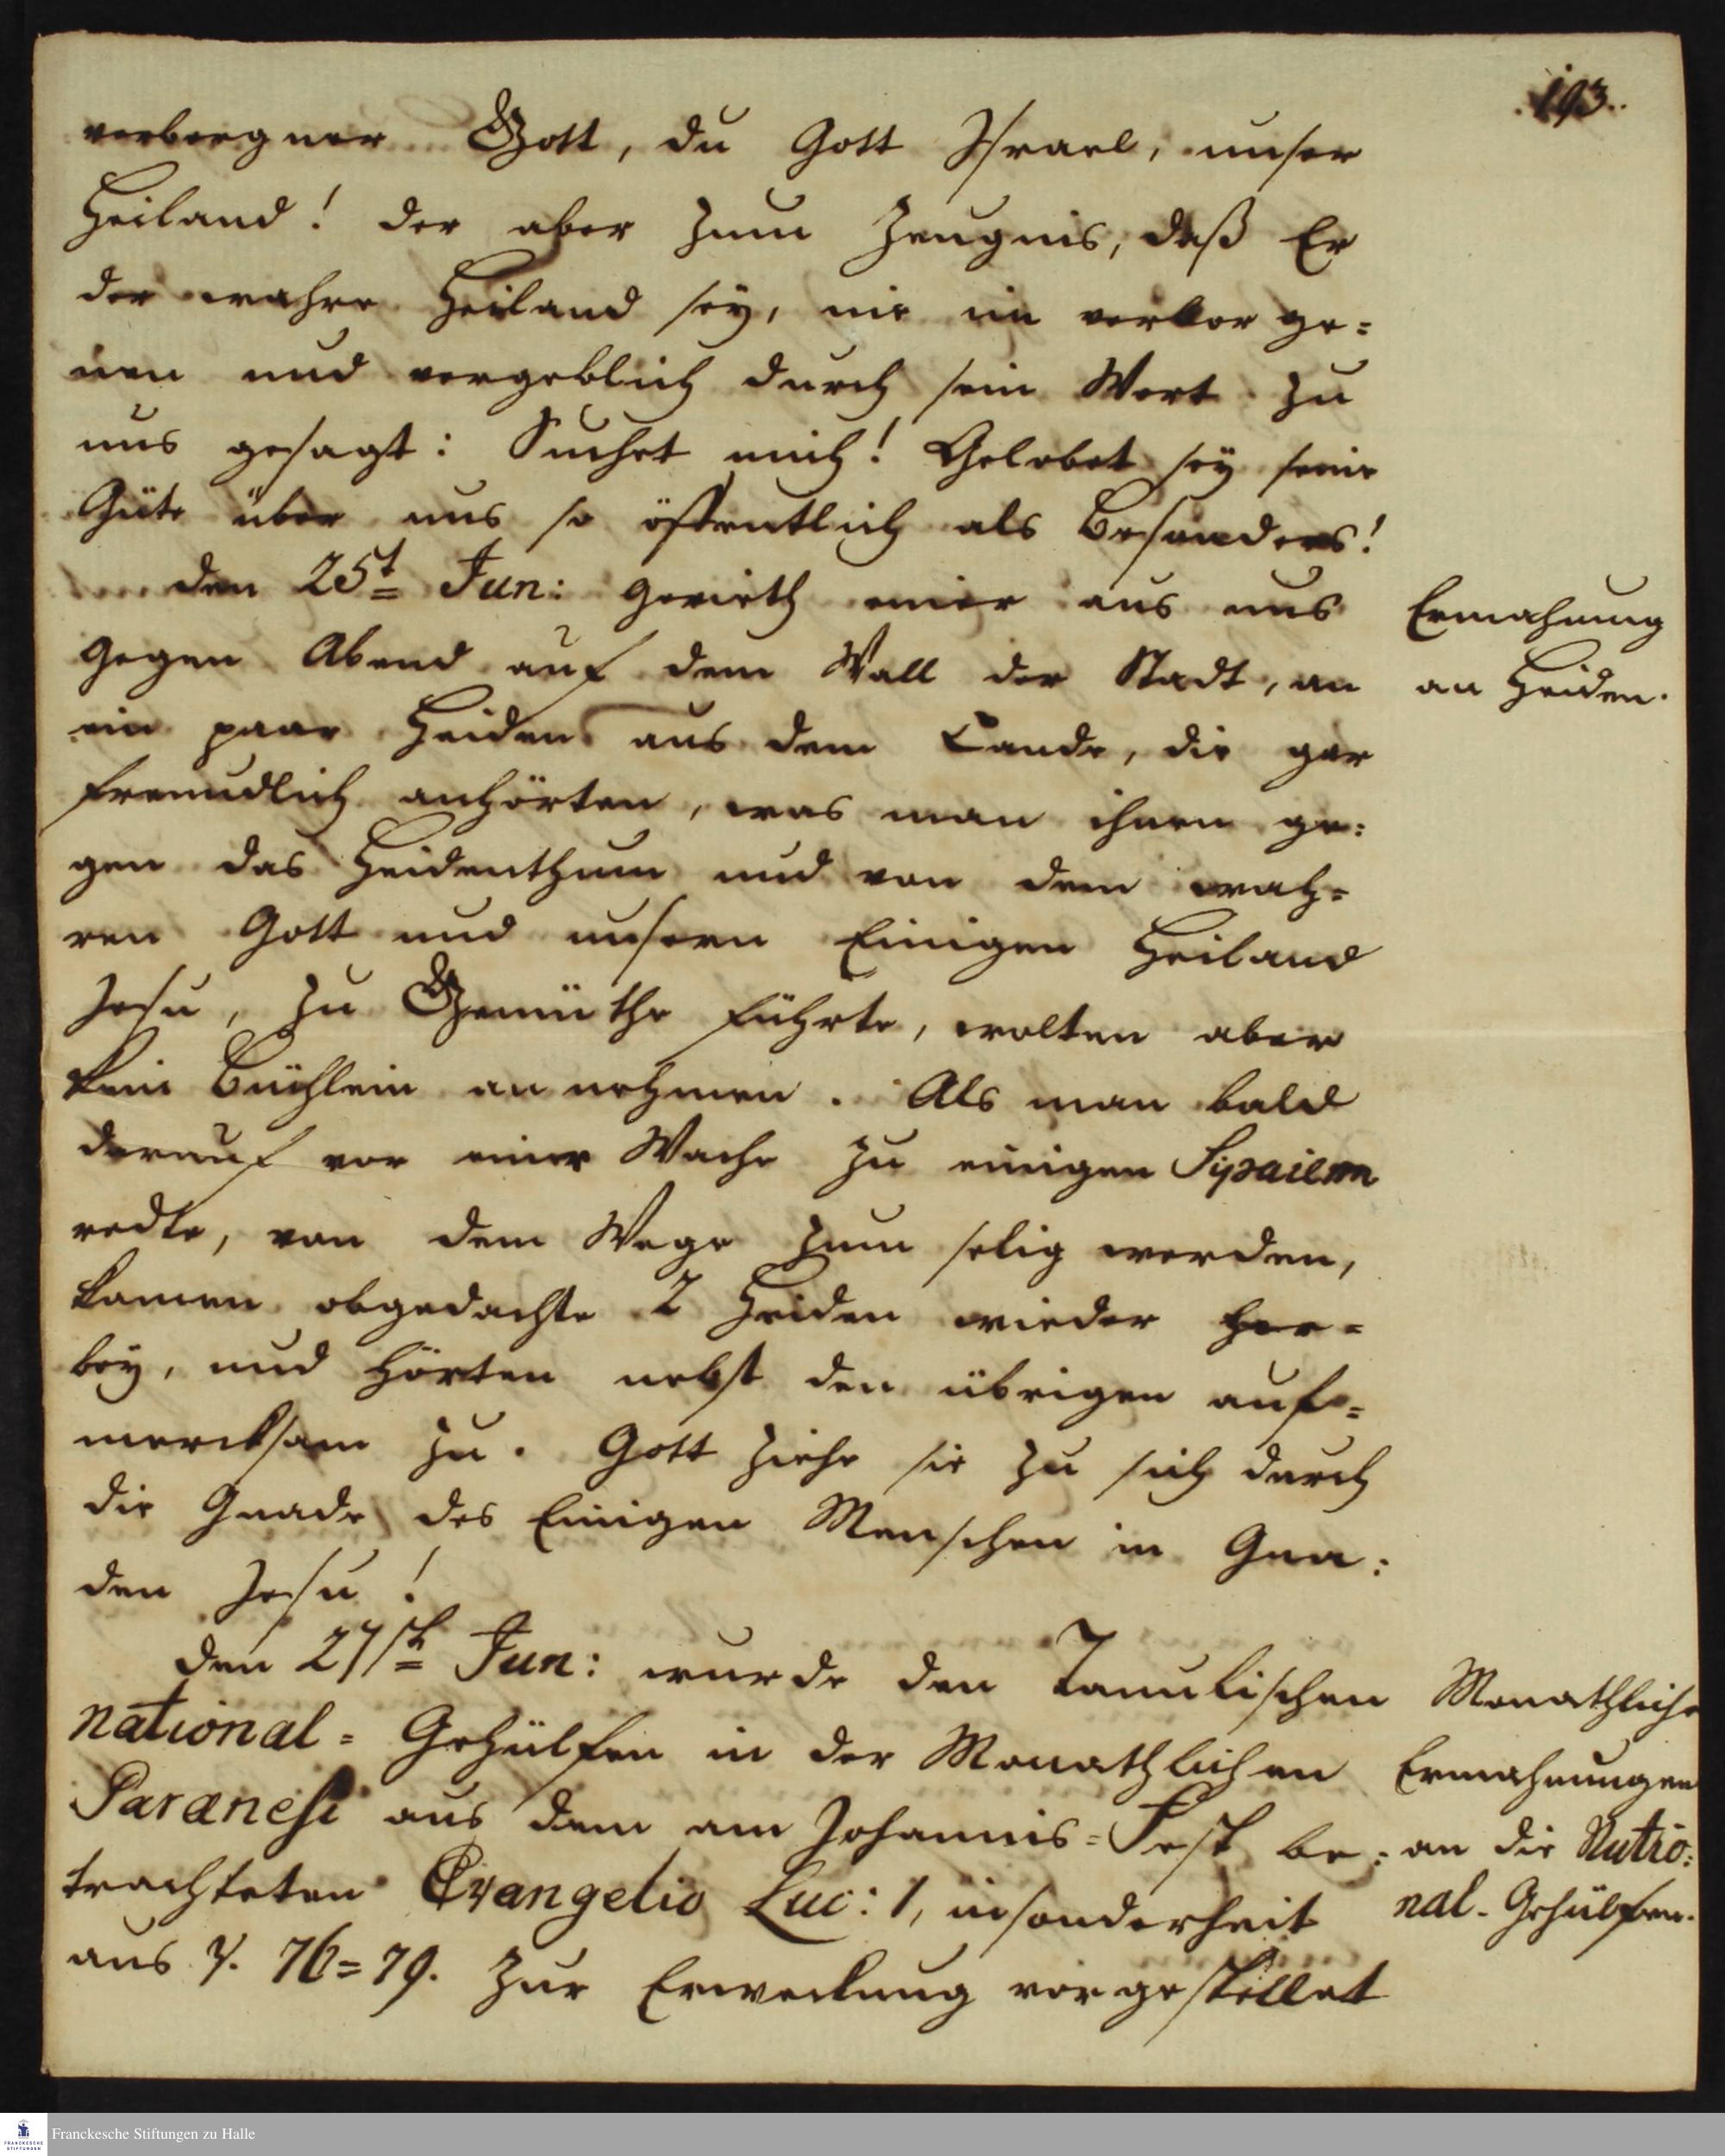 193.
verborgner Gott, du Gott Israel, unser
Heiland! der aber zum Zeugnis, daß Er
der wahre Heiland sey, nie im verborge=
nen und vergeblich durch sein Wort zu
uns gesagt: Suchet mich! Gelobet sey seine
Güte über uns so öffentlich als besonders!
den 25t Jun: gerieth einer aus uns
gegen Abend auf dem Wall der Stadt, an
ein paar Heiden aus dem Lande, die gar
freundlich anhörten, was man ihnen ge=
gen das Heidenthum und von dem wah=
ren Gott und unsern Einigen Heiland
Jesu, zu Gemüthe führte, wolten aber
kein Büchlein annehmen. Als man bald
darauf vor einer Wache zu einigen Sipaien
redte, von dem Wege zum selig werden,
kamen obgedachte 2 Heiden wieder her=
bey, und hörten nebst den übrigen auf=
mercksam zu. Gott ziehe sie zu sich durch
die Gnade des Einigen Menschen in Gna=
den Jesu!
Ermahnung
an Heiden.
den 27st Jun: wurde den Tamulischen
national=Gehülfen in der Monathlichen
Paranesi aus dem am Johannis=Fest be=
trachteten Evangelio Luc: 1, insonderheit
aus V. 76=79. zur Erweckung vorgestellet
Monathliche
Ermahnungen
an die Natio=
nal-Gehülfen.
Franckesche Stiftungen zu Halle
FRANCKESCHE
STIFTUNGEN